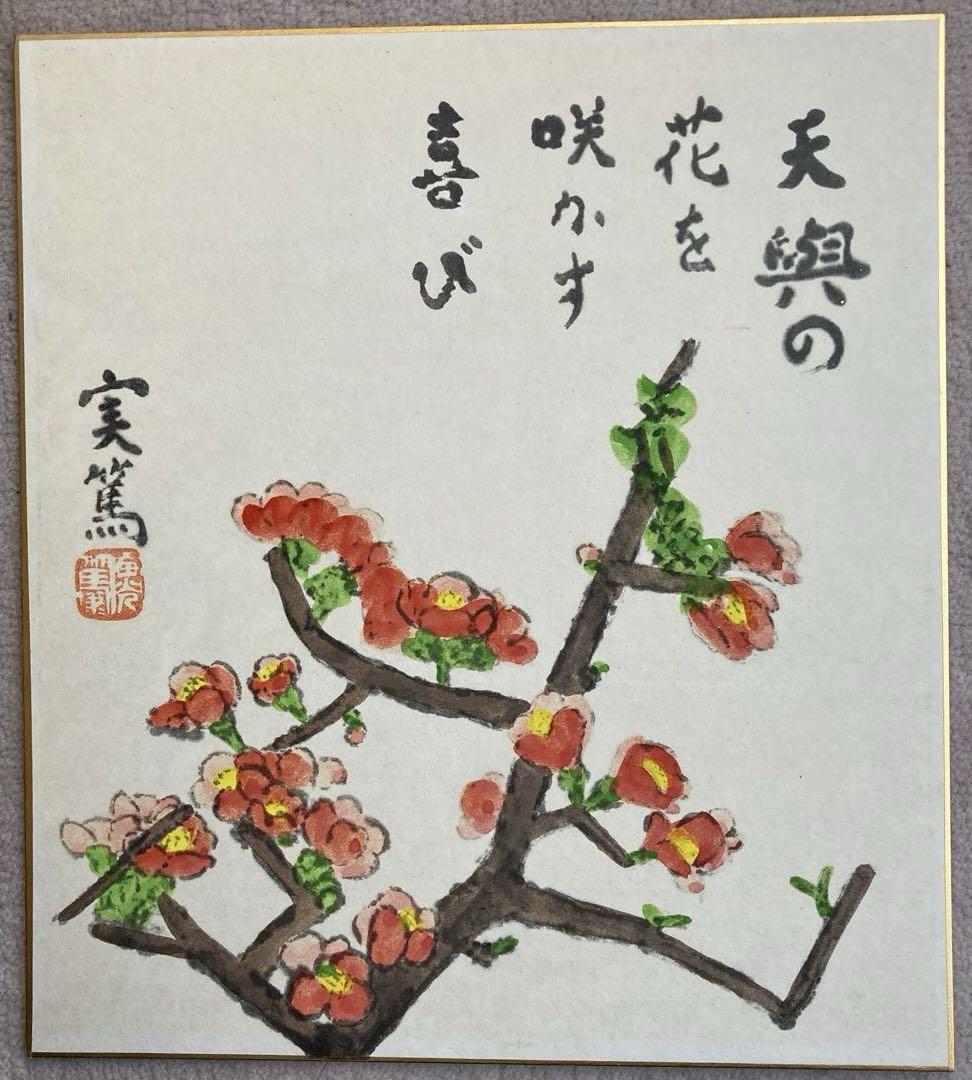 天與の
花を
咲かす
喜び
実篤